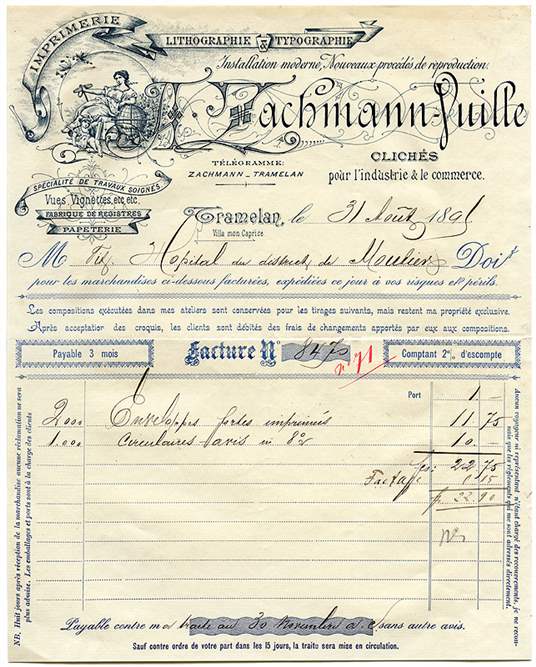 IMPRIMERIE
LITHOGRAPHIE & TYPOGRAPHIE
Installation moderne, Nouveaux procédés de reproduction.
Zachmann-Juille
CLICHÉS
pour l'industrie & le commerce.
TÉLÉGRAMME:
ZACHMANN_TRAMELAN
SPÉCIALITÉ DE TRAVAUX SOIGNÉS
Vues, Vignettes, etc, etc.
FABRIQUE DE REGISTRES
PAPETERIE
Tramelan, le 31 Août 1891
Villa mon Caprice
M Tit. Hopital du district de Moutier Doit
pour les marchandises ci-dessous facturées, expédiées ce jour à vos risques et périls.
Les compositions exécutées dans mes ateliers sont conservées pour les tirages suivants, mais restent ma propriété exclusive.
Après acceptation des croquis, les clients sont débités des frais de changements apportés par eux aux compositions.
Payable 3 mois
Facture No 8475
No 71
Comptant 2% d'escompte
Port 1 —
2000 Enveloppes fortes imprimés 11 75
1.000 Circulaires avis in 8º 10 —
frs: 22 75
Factage 0.15
fr. 22.90
NB. Huit jours après réception de la marchandise aucune réclamation ne sera
plus admise. Les emballages et ports sont à la charge des clients
Aucun voyageur ni représentant n'étant chargé des recouvrements, je ne reconnais
que les règlements qui me sont adressés directement.
Payable contre ma traite au 30 Novembre a. c. sans autre avis.
Sauf contre ordre de votre part dans les 15 jours, la traite sera mise en circulation.